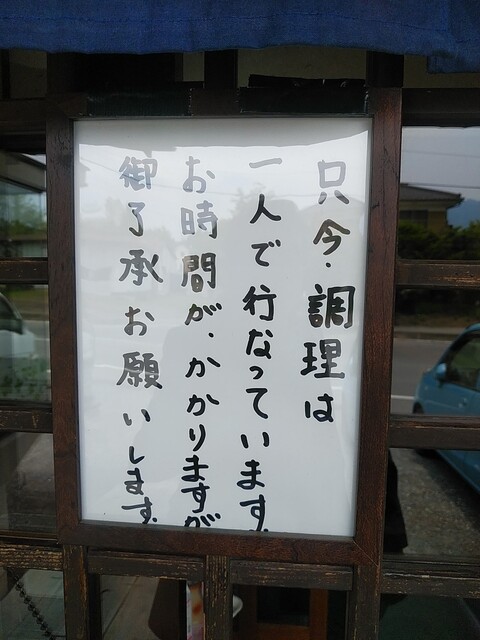 只今、調理は
一人で行なっています。
お時間が、かかりますが
御了承お願いします。